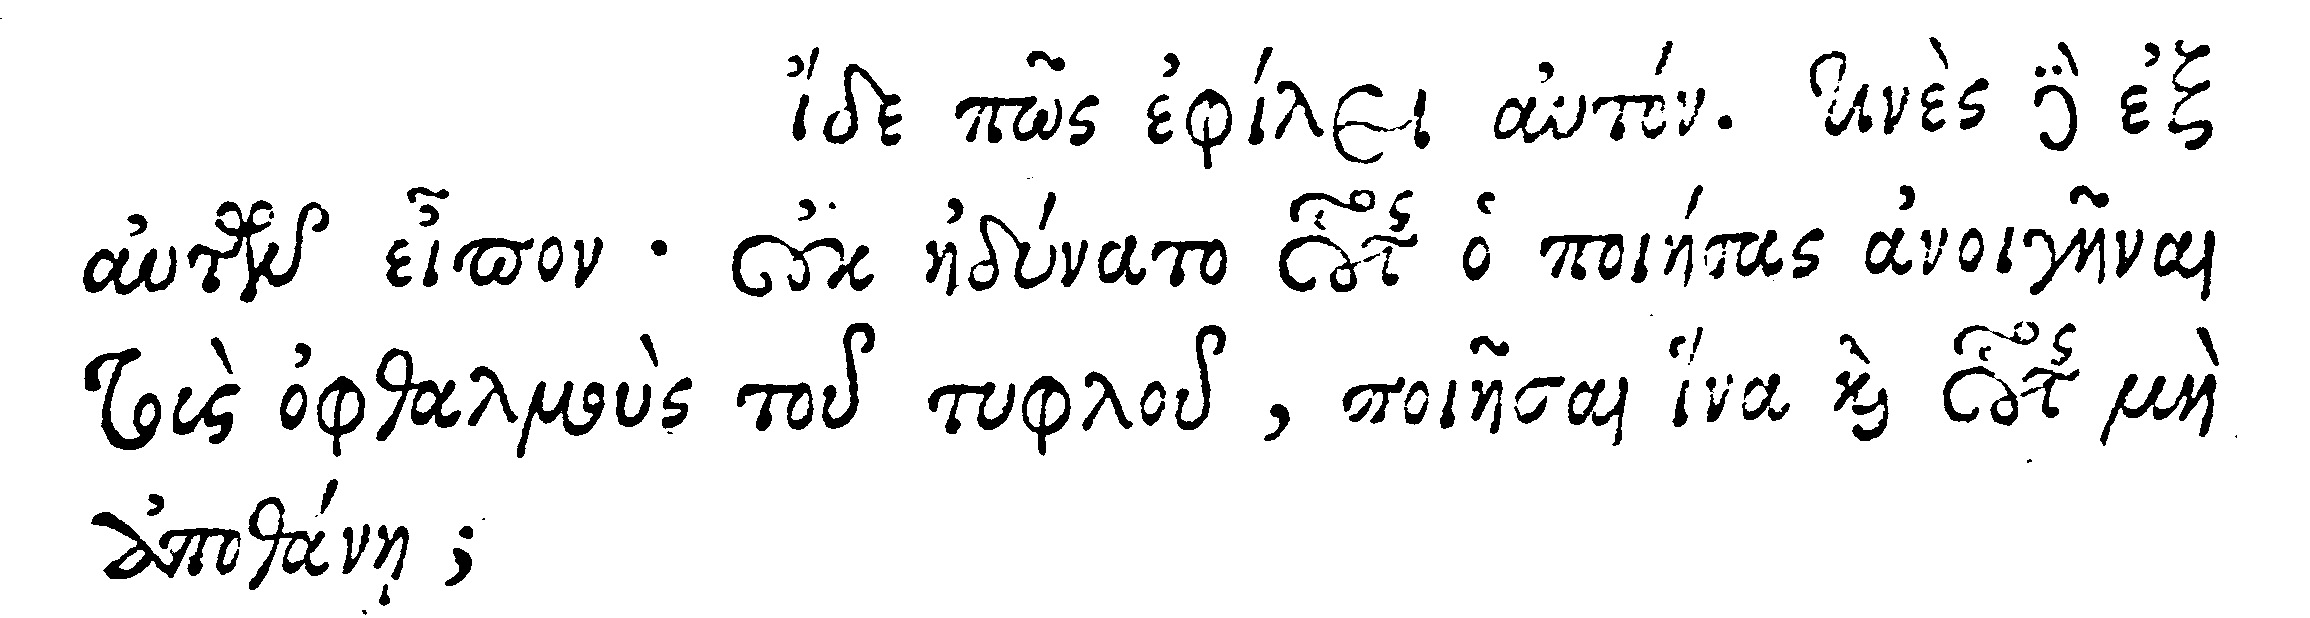 ἴδε πῶς ἐφίλει αὐτόν. τινὲς δὲ ἐξ
αὐτῶν εἶπον · οὐκ ἠδύνατο οὗτος ὁ ποιήσας ἀνοιγῆναι
τοὺς ὀφθαλμοὺς τοῦ τυφλοῦ, ποιῆσαι ἵνα καὶ οὗτος μὴ
ἀποθάνῃ;